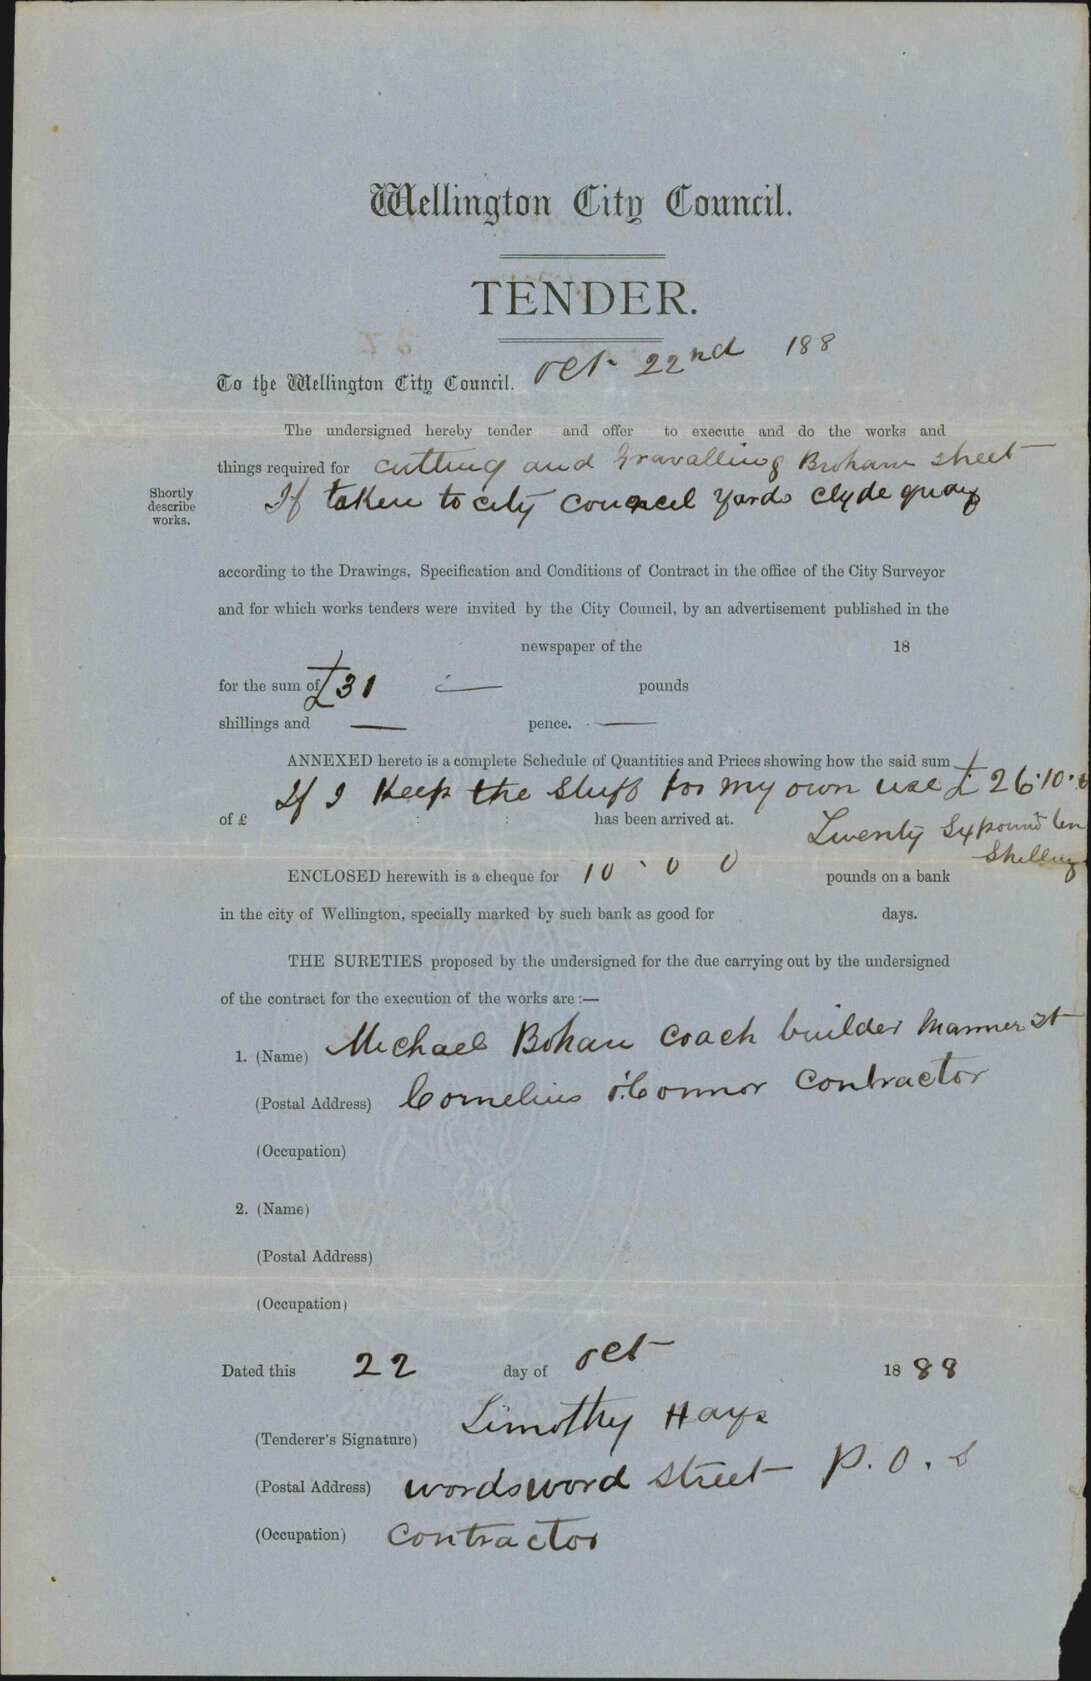 Wellington City Council.
TENDER.
Oct 22nd 188
To the Wellington City Council.
The undersigned hereby tender and offer to execute and do the works and
things required for cutting and Gravalling Broham street
Shortly describe works.
If taken to city council yards Clyde quay
according to the Drawings, Specification and Conditions of Contract in the office of the City Surveyor
and for which works tenders were invited by the City Council, by an advertisement published in the
newspaper of the 18
for the sum of £31 — pounds
shillings and — pence. —
ANNEXED hereto is a complete Schedule of Quantities and Prices showing how the said sum
If I Keep the stuff for my own use £26.10.0
of £ : : has been arrived at.
Twenty Sx pound ten
Shelling
ENCLOSED herewith is a cheque for 10 0 0 pounds on a bank
in the city of Wellington, specially marked by such bank as good for days.
THE SURETIES proposed by the undersigned for the due carrying out by the undersigned
of the contract for the execution of the works are :—
1. (Name) Michael Bohan coach builder Manner st
(Postal Address) Cornelius O'Connor Contractor
(Occupation)
2. (Name)
(Postal Address)
(Occupation)
Dated this 22 day of Oct 1888
(Tenderer's Signature) Timothy Hays
(Postal Address) wordsword street P. O. S
(Occupation) Contractor